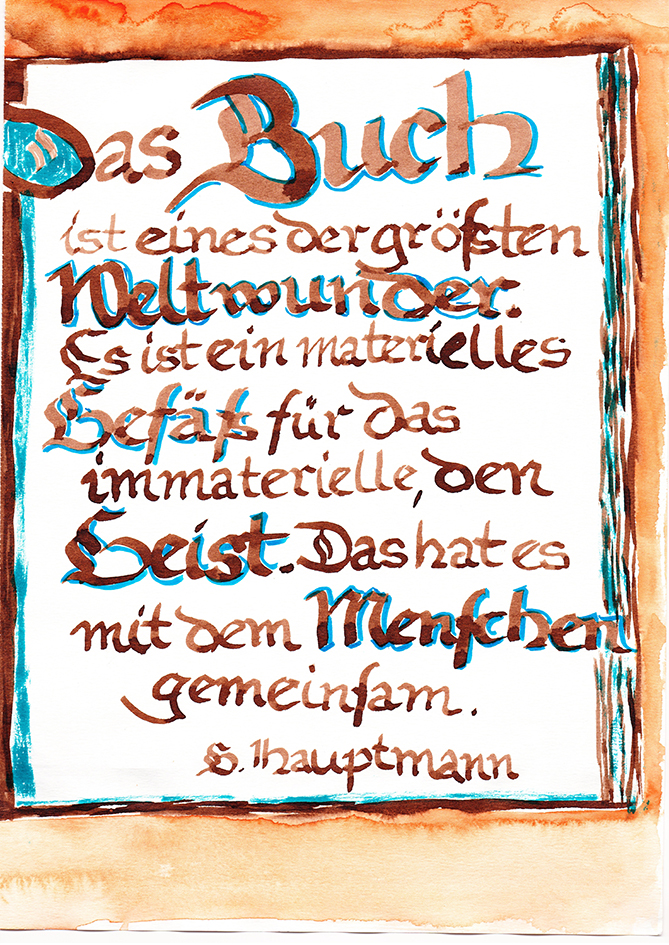 Das Buch
ist eines der größten
Weltwunder.
Es ist ein materielles
Gefäß für das
immaterielle, den
Geist. Das hat es
mit dem Menschen
gemeinsam.
G. Hauptmann